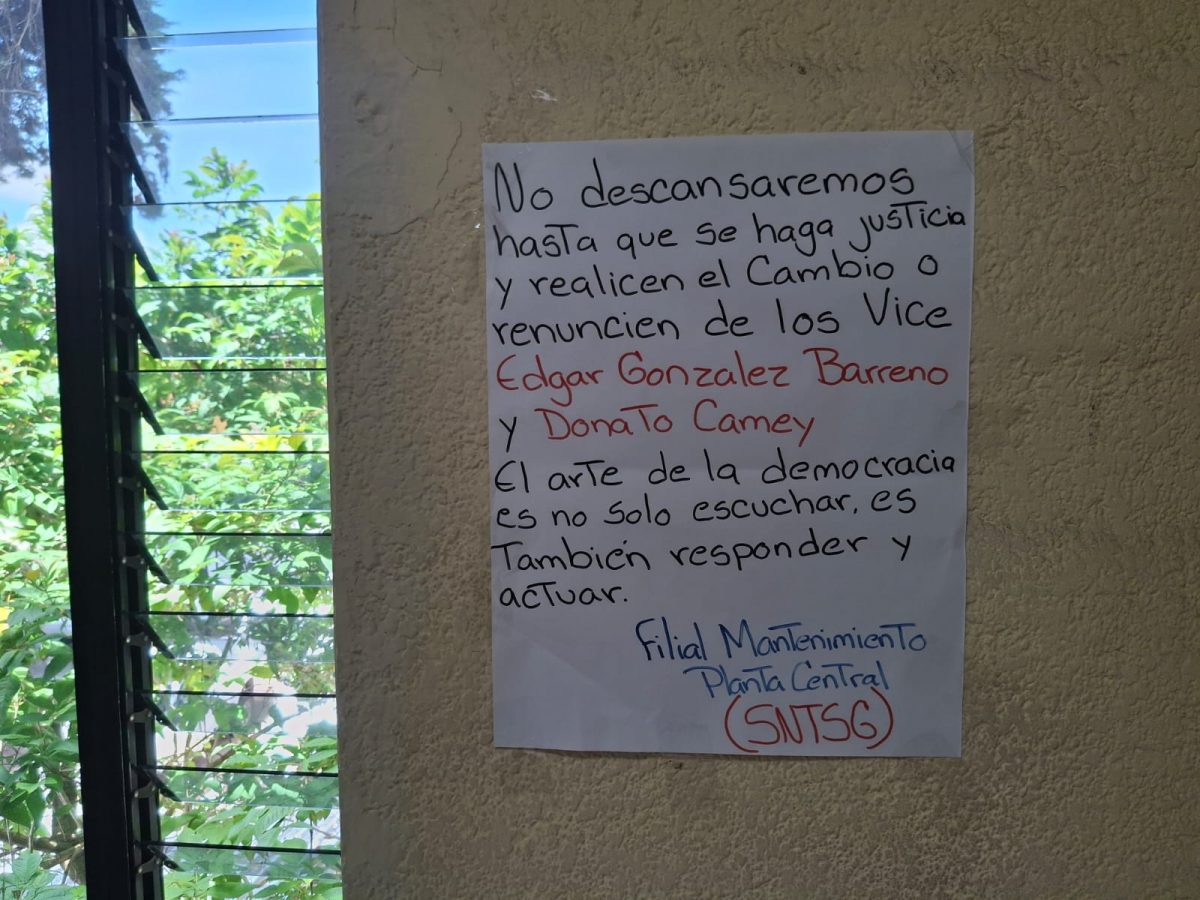 No descansaremos
hasta que se haga justicia
y realicen el Cambio o
renuncien de los Vice
Edgar Gonzalez Barreno
y Donato Camey
El arte de la democracia
es no solo escuchar, es
También responder y
actuar.
Filial Mantenimiento
Planta Central
(SNTSG)